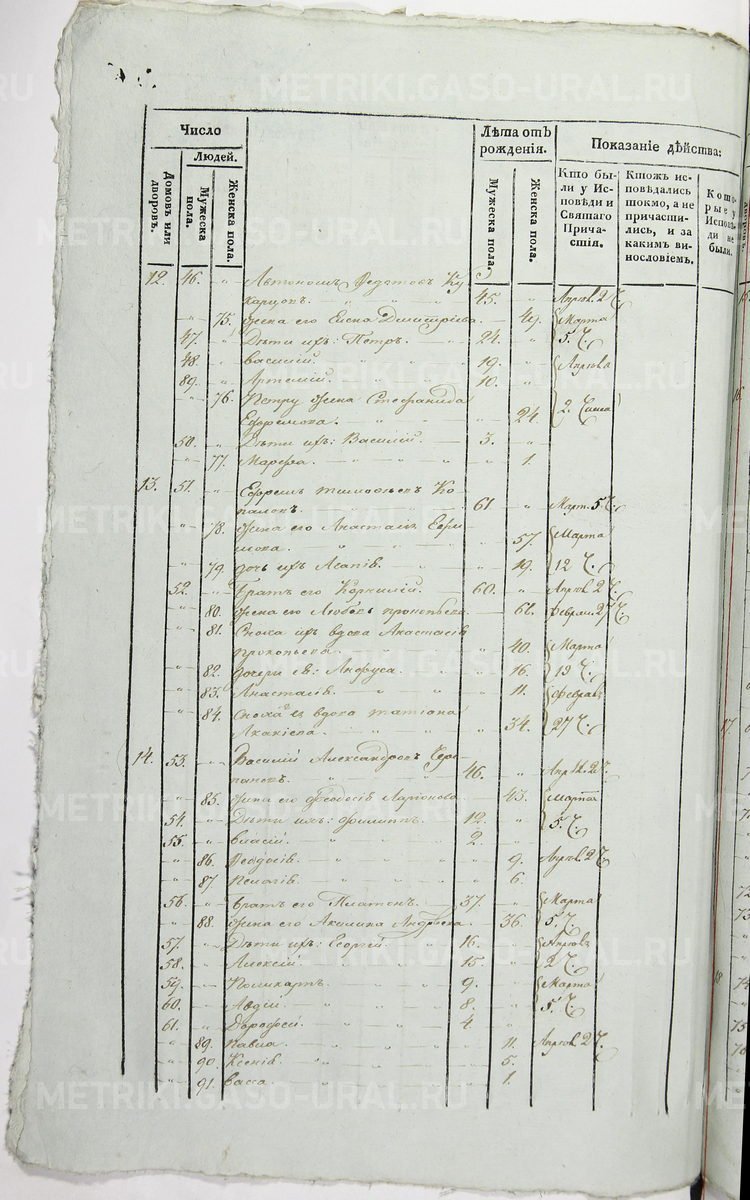 METRIKI.GASO-URAL.RU
Число
Людей.
Домовъ или дворовъ.
Мужеска пола.
Женска пола.
Лѣта отъ рожденія.
Мужеска пола.
Женска пола.
Показаніе дѣйства:
Кто бы-
ли у Ис-
повѣди и
Святаго
Прича-
стія.
Ктожъ ис-
повѣдались
токмо, а не
причасти-
лись, и за
какимъ ви-
нословіемъ.
Кото-
рые у
Исповѣ-
ди не
были.
12. 46. " Автономъ Федотовъ
" 45. " Апрѣля 2 Ч.
" 75. Жена его Елена Дмитріева " 49. Марта
47. " Дѣти ихъ: Петръ. 24. " 5. Ч.
48. " Василій. 19. " Апрѣля
89. " Артемій. 10. "
" 76. Петру жена Стефанида
Ефремова. " 24. 2. Числа
50. " Дѣти ихъ: Василій. 3. "
" 77. Марфа. " 1.
13. 51. " Ефремъ
61 " Март. 5 Ч.
" 78. Жена его Анастасія
" 57. Марта
" 79. дочь ихъ " 19. 12 Ч.
52. " Братъ его Корнилій. 60. " Апрѣл. 2 Ч.
" 80. Жена его Любовь прокопьева " 61. Феврал. 27 Ч.
" 81. Сноха ихъ вдова Анастасія
прокопьева. " 40. Марта
" 82. дочери ея: Анфуса. " 16. 19 Ч.
" 83. Анастасія. " 11. Февраля
" 84. Сноха вдова татіана
" 34. 27 Ч.
14. 53. " Василій Александровъ Чере-
пановъ. 46. " Апрѣл. 2 Ч.
" 85. Жена его Феодосія Ларіонова. " 43. Марта
54. " Дѣти ихъ: Филиппъ. 12. " 5. Ч.
55. " Власій. 2. "
" 86. Феодосія. " 9. Апрѣля 2 Ч.
" 87 Пелагія. " 6.
56. " Братъ его Платонъ. 37. " Марта
" 88. Жена его Акилина Андреева. " 36. 5. Ч.
57. " Дѣти ихъ: Георгій. 16. " Апрѣля
58. " Алексій. 15. " 2 Ч.
59. " Поликарпъ. 9. " Марта
60. " Авдій. 8. " 5. Ч.
61. " Дорофей. 4. "
" 89. Павла. " 11. Апрѣля 2 Ч.
" 90. Ксенія " 5.
" 91. Васса. " 1.